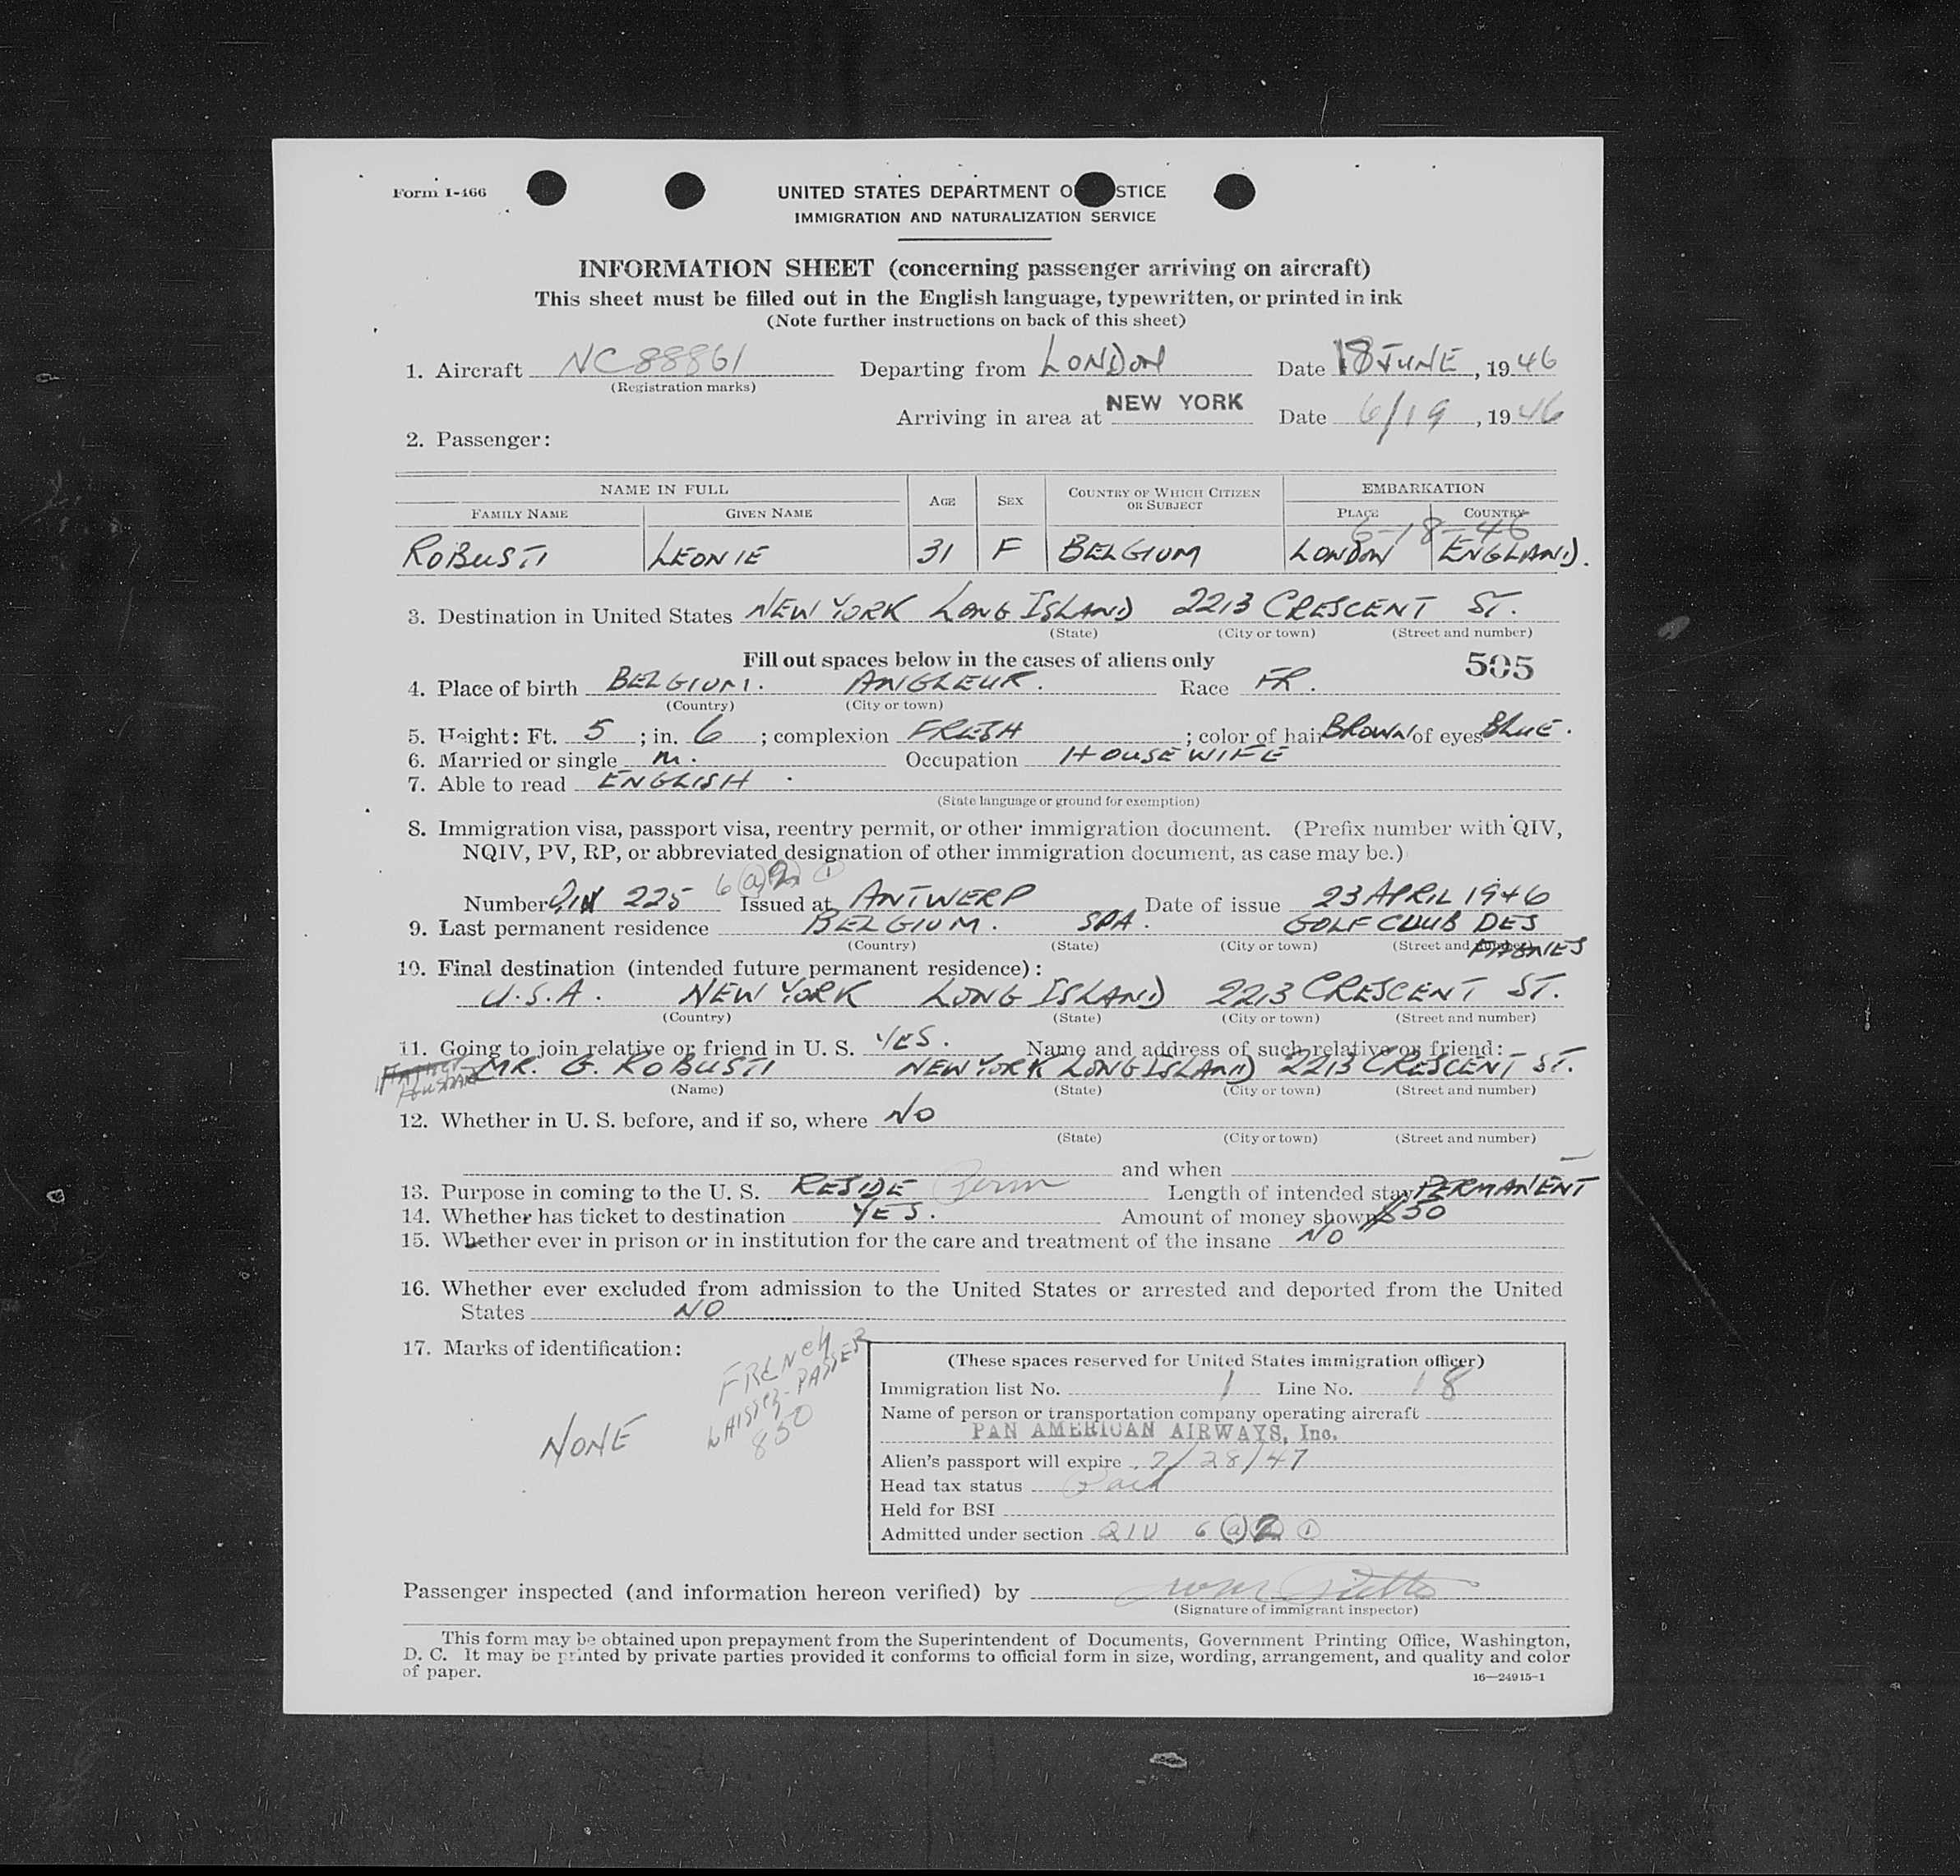 Form I-466
UNITED STATES DEPARTMENT O STICE
IMMIGRATION AND NATURALIZATION SERVICE
INFORMATION SHEET (concerning passenger arriving on aircraft)
This sheet must be filled out in the English language, typewritten, or printed in ink
(Note further instructions on back of this sheet)
1. Aircraft NC88861 Departing from LONDON Date 18 JUNE, 1946
(Registration marks)
Arriving in area at NEW YORK Date 6/19, 1946
2. Passenger:
NAME IN FULL AGE SEX COUNTRY OF WHICH CITIZEN OR SUBJECT EMBARKATION
FAMILY NAME GIVEN NAME PLACE COUNTRY
6-18-46
ROBUSTI LEONIE 31 F BELGIUM LONDON ENGLAND.
3. Destination in United States NEW YORK LONG ISLAND 2213 CRESCENT ST.
(State) (City or town) (Street and number)
Fill out spaces below in the cases of aliens only 505
4. Place of birth BELGIUM. ANGLEUR. Race FR.
(Country) (City or town)
5. Height: Ft. 5; in. 6; complexion FRESH; color of hair BROWN of eyes BLUE.
6. Married or single M. Occupation HOUSEWIFE
7. Able to read ENGLISH
(State language or ground for exemption)
8. Immigration visa, passport visa, reentry permit, or other immigration document. (Prefix number with QIV,
NQIV, PV, RP, or abbreviated designation of other immigration document, as case may be.)
6 (a) 2 (1)
Number QIV 225 Issued at ANTWERP Date of issue 23 APRIL 1946
9. Last permanent residence BELGIUM. SPA. GOLF CLUB DES
(Country) (State) (City or town) (Street and number)
10. Final destination (intended future permanent residence):
U.S.A. NEW YORK LONG ISLAND 2213 CRESCENT ST.
(Country) (State) (City or town) (Street and number)
11. Going to join relative or friend in U. S. YES. Name and address of such relative or friend:
HUSBAND MR. G. ROBUSTI NEW YORK LONG ISLAND 2213 CRESCENT ST.
(Name) (State) (City or town) (Street and number)
12. Whether in U. S. before, and if so, where NO
(State) (City or town) (Street and number)
and when —
13. Purpose in coming to the U. S. RESIDE Perm Length of intended stay PERMANENT
14. Whether has ticket to destination YES. Amount of money shown $50
15. Whether ever in prison or in institution for the care and treatment of the insane NO
16. Whether ever excluded from admission to the United States or arrested and deported from the United
States NO
17. Marks of identification:
NONE
FRENCH
LAISSEZ-PASSER
850
(These spaces reserved for United States immigration officer)
Immigration list No. 1 Line No. 18
Name of person or transportation company operating aircraft
PAN AMERICAN AIRWAYS, Inc.
Alien's passport will expire 2/28/47
Head tax status Paid
Held for BSI
Admitted under section QIV 6 (a) 2 (1)
Passenger inspected (and information hereon verified) by
(Signature of immigrant inspector)
This form may be obtained upon prepayment from the Superintendent of Documents, Government Printing Office, Washington,
D. C. It may be printed by private parties provided it conforms to official form in size, wording, arrangement, and quality and color
of paper.
16—24915-1